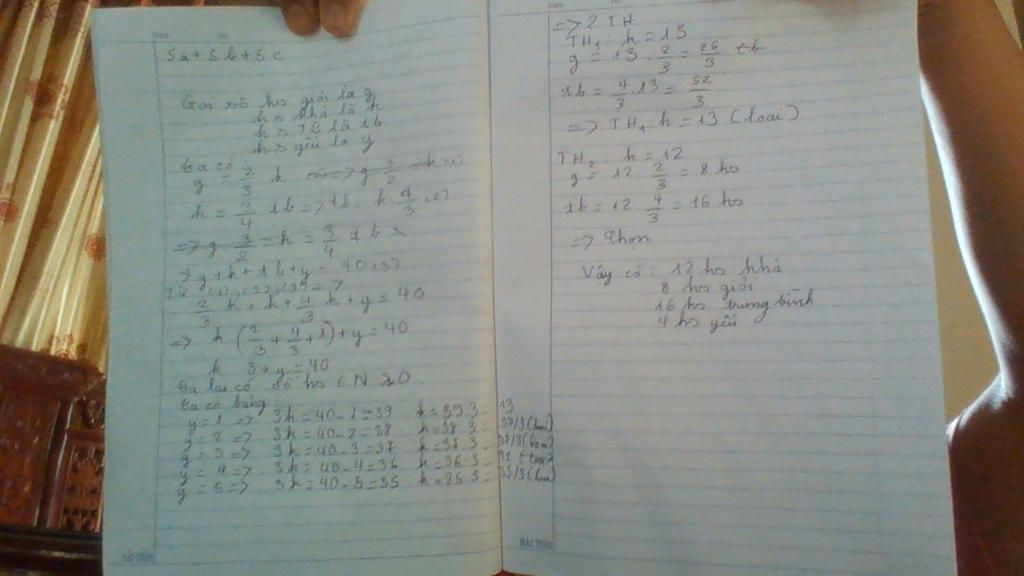 5a+5b+5c
Gọi số hs giỏi là g
hs khá là k
hs TB là tb
hs yếu là y
Ta có:
g = 2/3 k => g 3/2 = k (1)
k = 3/4 tb => tb = k 4/3 (2)
=> g 3/2 = k = 3/4 tb
g+k+tb+y = 40 (3)
Từ (1),(2),(3) =>
2/3 k + k + 4/3 k + y = 40
=> k (2/3 + 4/3 + 1) + y = 40
k 3 + y = 40
Ta lại có số hs ∈ N 0
Ta có bảng:
y = 1 => 3k = 40 - 1 = 39 k = 39:3 = 13
y = 2 => 3k = 40 - 2 = 38 k = 38:3 = 38/3 (loại)
y = 3 => 3k = 40 - 3 = 37 k = 37:3 = 37/3 (loại)
y = 4 => 3k = 40 - 4 = 36 k = 36:3 = 12 (chọn)
y = 5 => 3k = 40 - 5 = 35 k = 35:3 = 35/3 (loại)
=> 2 TH
TH1: k = 13
g = 13 · 2/3 = 26/3
tb = 4/3 · 13 = 52/3
=> TH1: k = 13 (loại)
TH2: k = 12
g = 12 · 2/3 = 8 hs
tb = 12 · 4/3 = 16 hs
=> Chọn
Vậy có: 12 hs khá
8 hs giỏi
16 hs trung bình
4 hs yếu